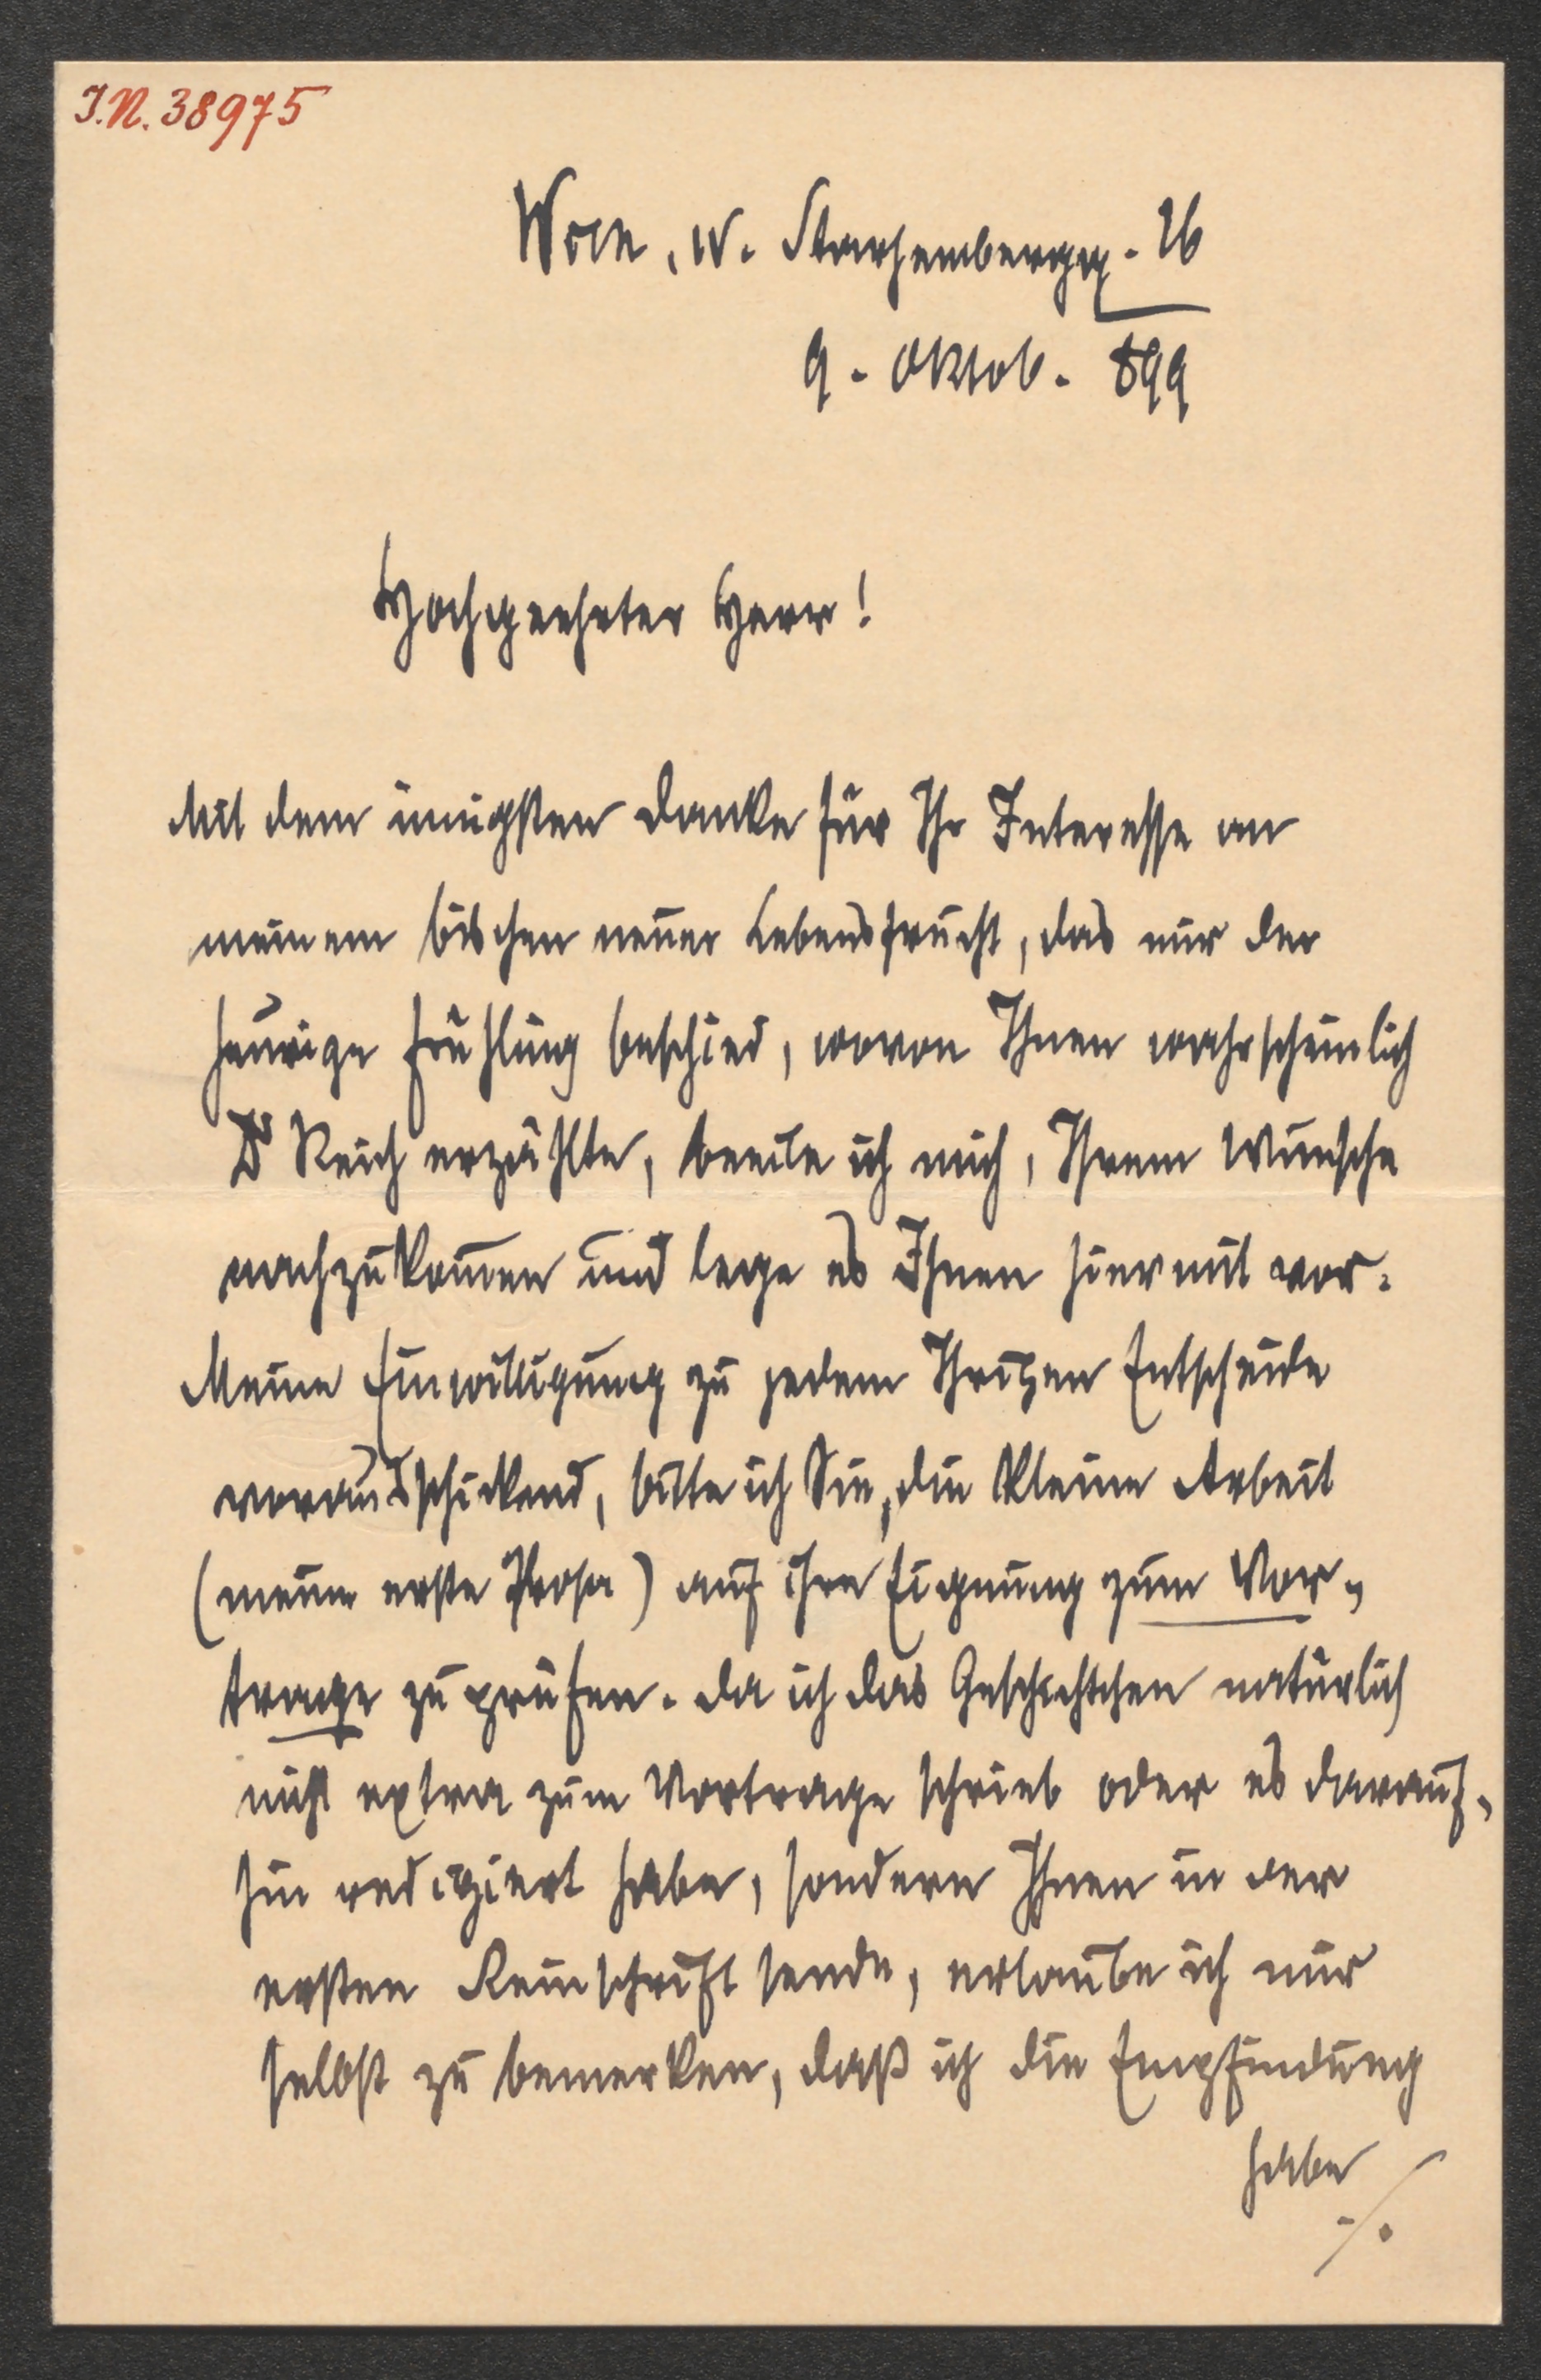 I.N. 38975
Wien, IV. Starhembergg. 26
9. Oktob. 899
Hochgeehrter Herr!
Mit dem innigsten Danke für Ihr Interesse an
meinem bischen neuer Lebensfrucht, das mir der
heurige Frühling beschied, wovon Ihnen wahrscheinlich
Dr Reich erzählte, beeile ich mich, Ihrem Wunsche
nachzukom̄en und lege es Ihnen hiermit vor.
Meine Einwilligung zu jedem Ihrigen Entscheide
vorausschickend, bitte ich Sie, die kleine Arbeit
(meine erste Prosa) auf ihre Eignung zum Vor-
trage zu prüfen. Da ich das Geschichtchen natürlich
nicht extra zum Vortrage schrieb oder es darauf-
hin redigiert habe, sondern Ihnen in der
ersten Reinschrift sende, erlaube ich mir
selbst zu bemerken, daß ich die Empfindung
habe
./.